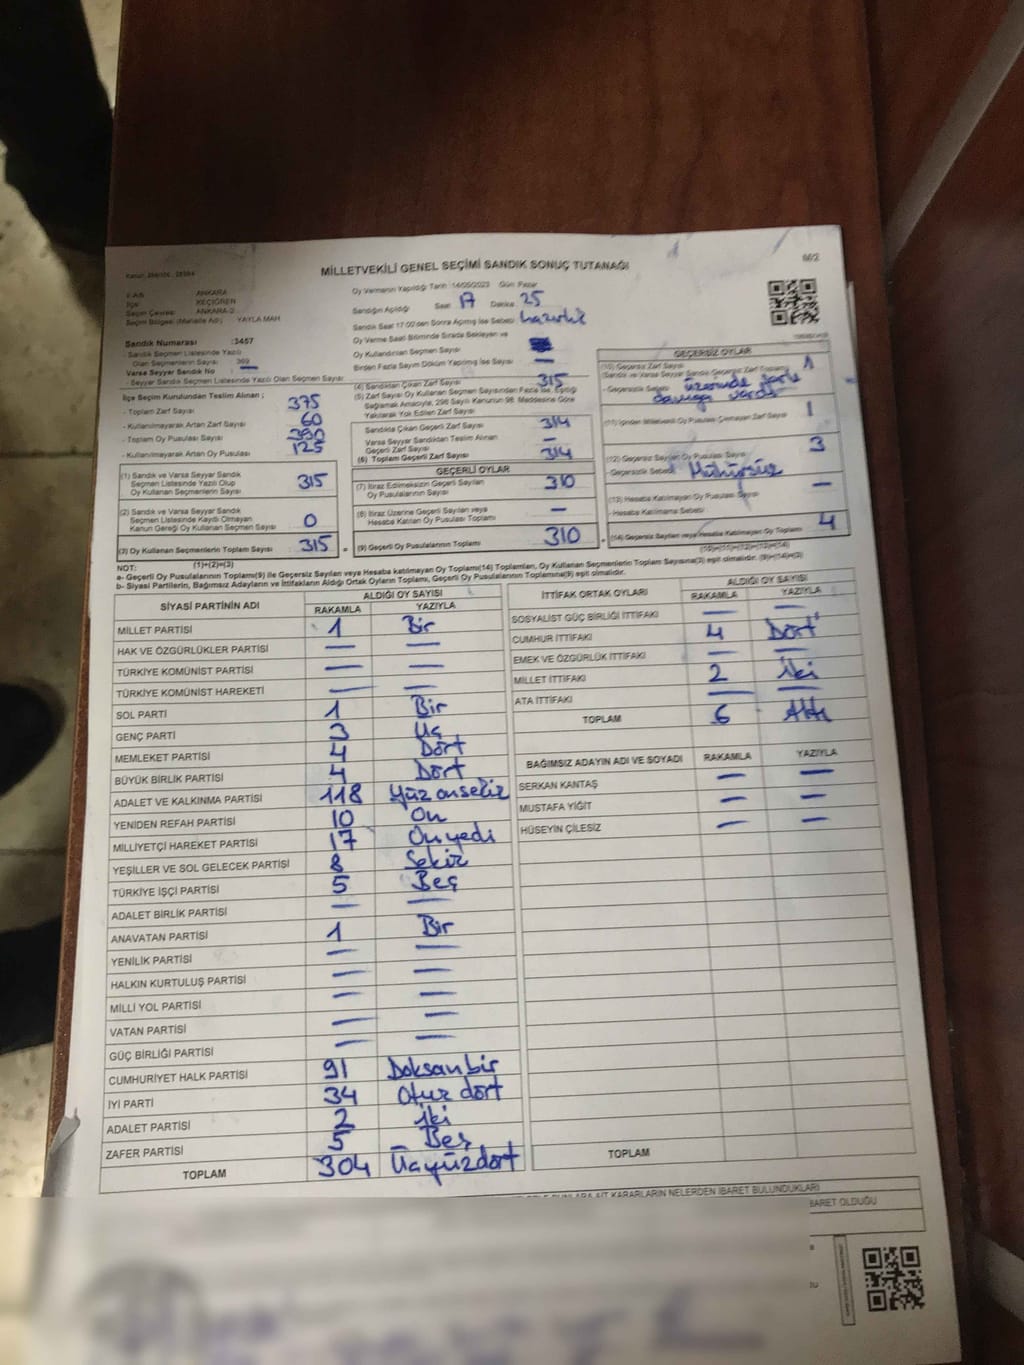 MİLLETVEKİLİ GENEL SEÇİMİ SANDIK SONUÇ TUTANAĞI
ANKARA
İlçe KEÇİÖREN
Seçim Çevresi ANKARA-2
Seçim Bölgesi (Mahalle Adı) YAYLA MAH
Sandık Numarası :3457
- Sandık Seçmen Listesinde Yazılı
Olan Seçmenlerin Sayısı
Varsa Seyyar Sandık No : —
- Seyyar Sandık Seçmen Listesinde Yazılı Olan Seçmen Sayısı
Oy Vermenin Yapıldığı Tarih 14/05/2023 Gün Pazar
Sandığın Açıldığı Saat 17 Dakika 25
Sandık Saat 17:00'den Sonra Açılmış İse Sebebi hazırlık
Oy Verme Saati Bitiminde Sırada Bekleyen ve
Oy Kullandırılan Seçmen Sayısı
Birden Fazla Sayım Döküm Yapılmış İse Sayısı —
İlçe Seçim Kurulundan Teslim Alınan ;
- Toplam Zarf Sayısı 375
- Kullanılmayarak Artan Zarf Sayısı 60
- Toplam Oy Pusulası Sayısı
- Kullanılmayarak Artan Oy Pusulası 125
(1) Sandık ve Varsa Seyyar Sandık
Seçmen Listesinde Yazılı Olup
Oy Kullanan Seçmenlerin Sayısı 315
(2) Sandık ve Varsa Seyyar Sandık
Seçmen Listesinde Kayıtlı Olmayan
Kanun Gereği Oy Kullanan Seçmen Sayısı 0
(3) Oy Kullanan Seçmenlerin Toplam Sayısı 315
(1)+(2)=(3)
(4) Sandıktan Çıkan Zarf Sayısı 315
(5) Zarf Sayısı Oy Kullanan Seçmen Sayısından Fazla İse, Eşitliği
Sağlamak Amacıyla, 298 Sayılı Kanunun 98. Maddesine Göre
Yakılarak Yok Edilen Zarf Sayısı
Sandıkta Çıkan Geçerli Zarf Sayısı 314
Varsa Seyyar Sandıktan Teslim Alınan
Geçerli Zarf Sayısı —
(6) Toplam Geçerli Zarf Sayısı 314
GEÇERLİ OYLAR
(7) İtiraz Edilmeksizin Geçerli Sayılan
Oy Pusulalarının Sayısı 310
(8) İtiraz Üzerine Geçerli Sayılan veya
Hesaba Katılan Oy Pusulası Toplamı —
(9) Geçerli Oy Pusulalarının Toplamı 310
GEÇERSİZ OYLAR
(10) Geçersiz Zarf Sayısı 1
(Sandık ve Varsa Seyyar Sandık Geçersiz Zarf Toplamı)
- Geçersizlik Sebebi üzerinde
damga vardı
(11) İçinden Milletvekili Pusulası Çıkmayan Zarf Sayısı 1
(12) Geçersiz Sayılan Oy Pusulası Sayısı 3
- Geçersizlik Sebebi Mühürsüz
(13) Hesaba Katılmayan Oy Pusulası Sayısı —
- Hesaba Katılmama Sebebi
(14) Geçersiz Sayılan veya Hesaba Katılmayan Oy Toplamı 4
(10)+(11)+(12)+(13)=(14)
NOT:
a- Geçerli Oy Pusulalarının Toplamı(9) ile Geçersiz Sayılan veya Hesaba katılmayan Oy Toplamı(14) Toplamları, Oy Kullanan Seçmenlerin Toplam Sayısına(3) eşit olmalıdır. (9)+(14)=(3)
b- Siyasi Partilerin, Bağımsız Adayların ve İttifakların Aldığı Ortak Oyların Toplamı, Geçerli Oy Pusulalarının Toplamına(9) eşit olmalıdır.
SİYASİ PARTİNİN ADI ALDIĞI OY SAYISI
RAKAMLA YAZIYLA
MİLLET PARTİSİ 1 Bir
HAK VE ÖZGÜRLÜKLER PARTİSİ — —
TÜRKİYE KOMÜNİST PARTİSİ — —
TÜRKİYE KOMÜNİST HAREKETİ — —
SOL PARTİ 1 Bir
GENÇ PARTİ 3 Üç
MEMLEKET PARTİSİ 4 Dört
BÜYÜK BİRLİK PARTİSİ 4 Dört
ADALET VE KALKINMA PARTİSİ 118 Yüz onsekiz
YENİDEN REFAH PARTİSİ 10 On
MİLLİYETÇİ HAREKET PARTİSİ 17 Onyedi
YEŞİLLER VE SOL GELECEK PARTİSİ 8 Sekiz
TÜRKİYE İŞÇİ PARTİSİ 5 Beş
ADALET BİRLİK PARTİSİ — —
ANAVATAN PARTİSİ 1 Bir
YENİLİK PARTİSİ — —
HALKIN KURTULUŞ PARTİSİ — —
MİLLİ YOL PARTİSİ — —
VATAN PARTİSİ — —
GÜÇ BİRLİĞİ PARTİSİ — —
CUMHURİYET HALK PARTİSİ 91 Doksanbir
İYİ PARTİ 34 Otuz dört
ADALET PARTİSİ 2 İki
ZAFER PARTİSİ 5 Beş
TOPLAM 304 Üçyüzdört
İTTİFAK ORTAK OYLARI ALDIĞI OY SAYISI
RAKAMLA YAZIYLA
SOSYALİST GÜÇ BİRLİĞİ İTTİFAKI — —
CUMHUR İTTİFAKI 4 Dört
EMEK VE ÖZGÜRLÜK İTTİFAKI — —
MİLLET İTTİFAKI 2 İki
ATA İTTİFAKI — —
TOPLAM 6 Altı
BAĞIMSIZ ADAYIN ADI VE SOYADI RAKAMLA YAZIYLA
SERKAN KANTAŞ — —
MUSTAFA YİĞİT — —
HÜSEYİN ÇİLESİZ — —
TOPLAM
BUNLARA AİT KARARLARIN NELERDEN İBARET BULUNDUKLARI
İBARET OLDUĞU